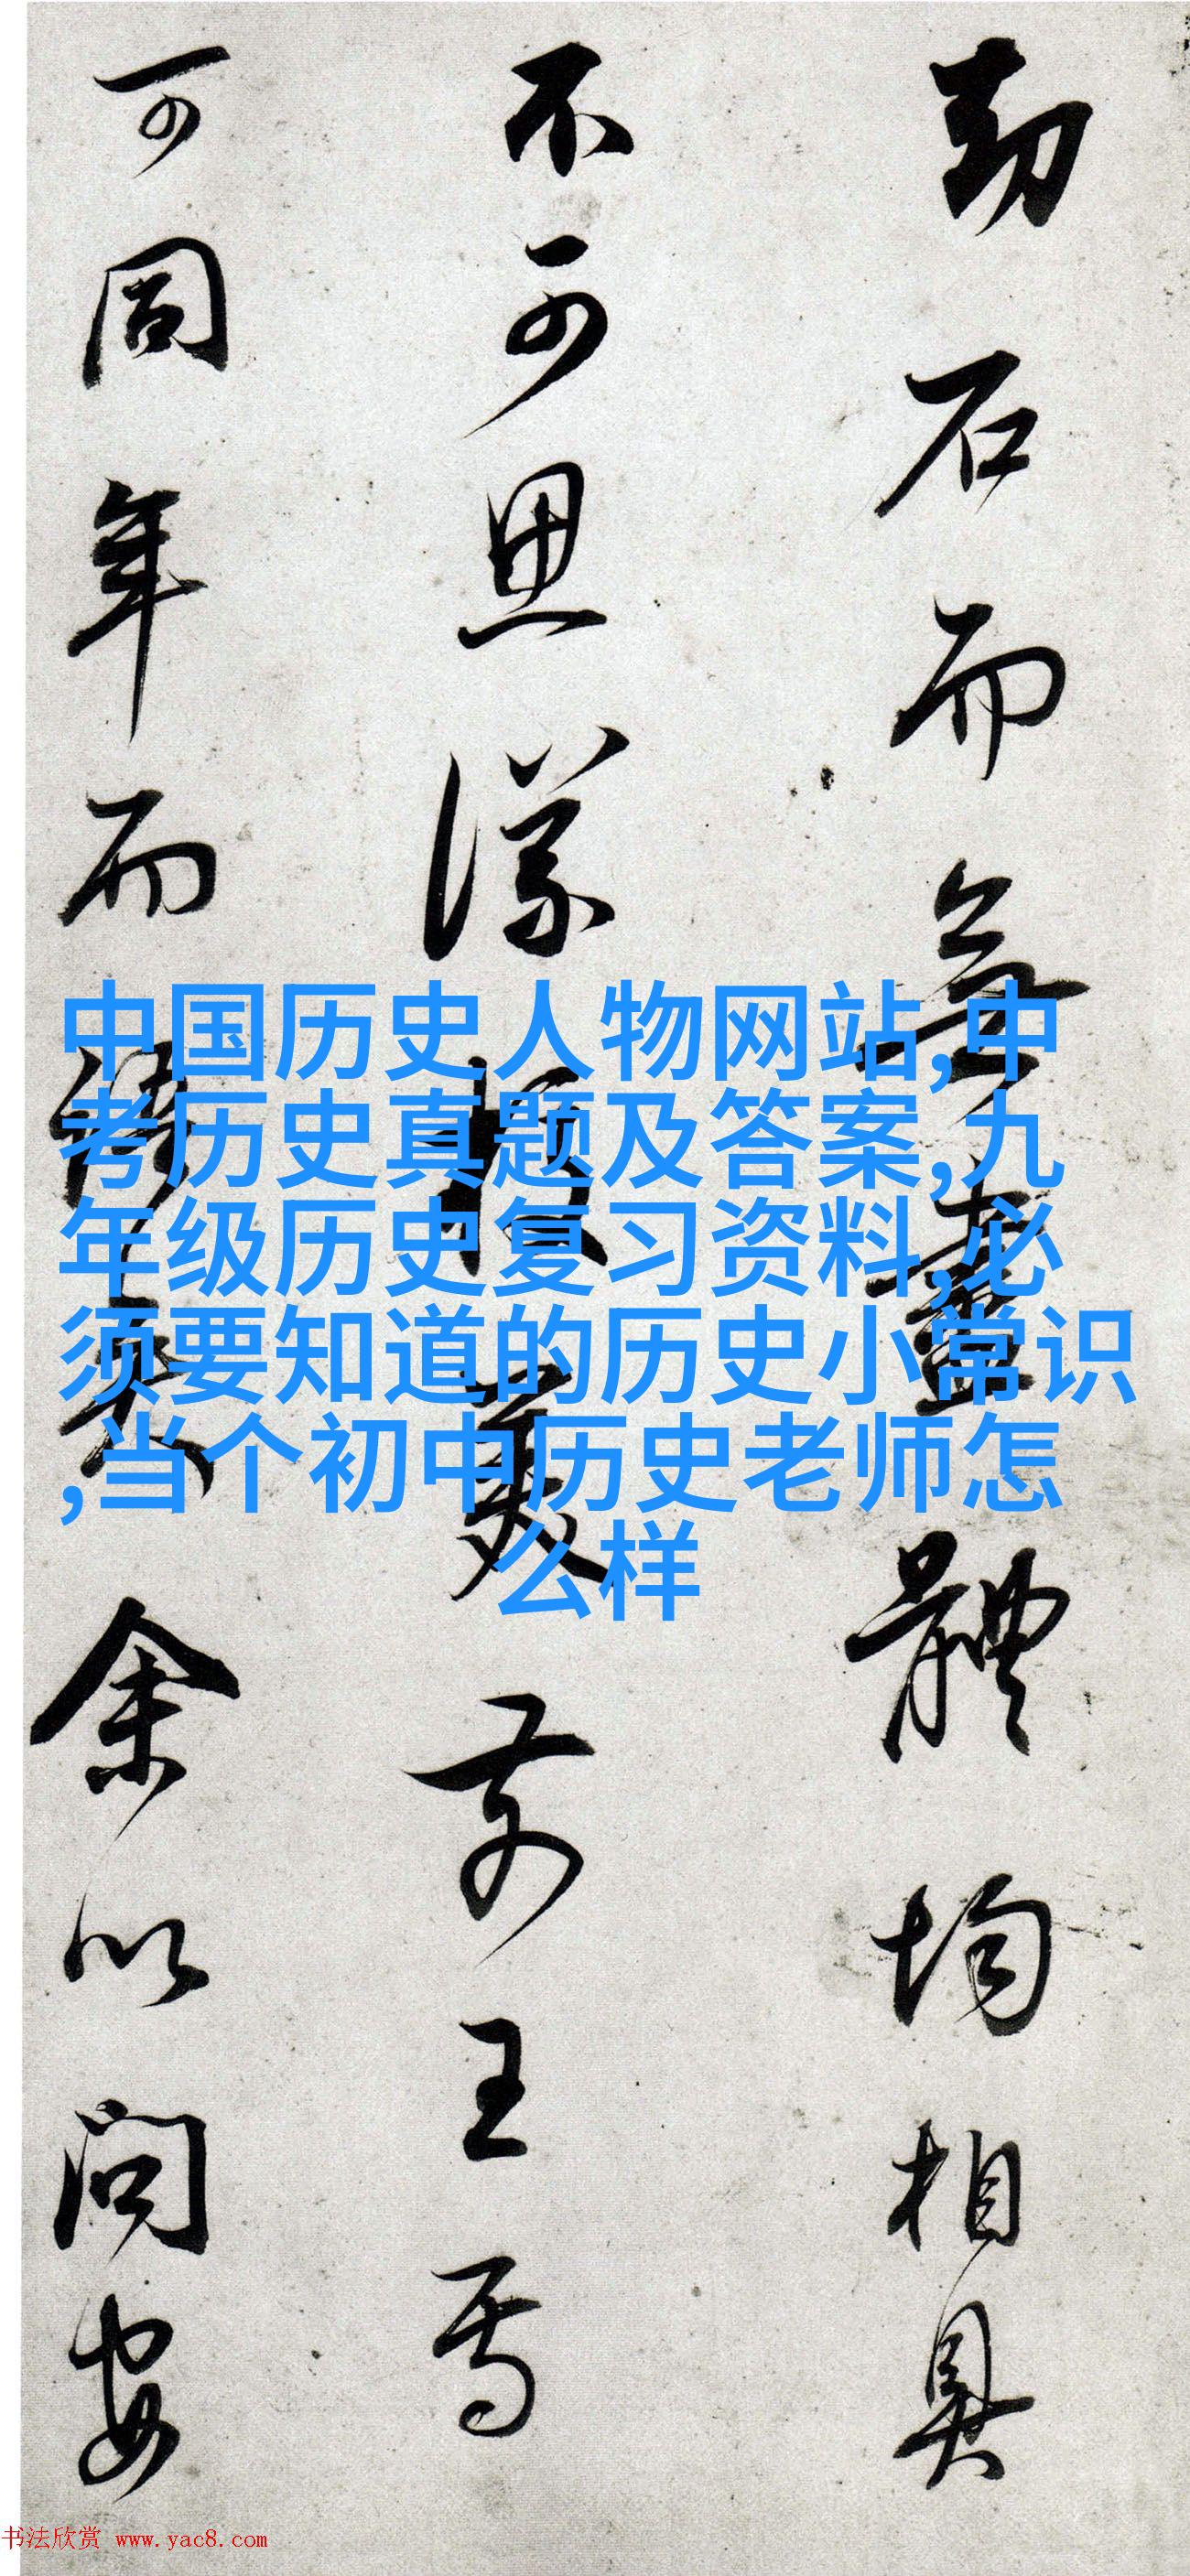 劫石而無盡體均相具
不可思議
前王焉
可同年而語矣余以问安
中国历史人物网站,中
考历史真题及答案,九
年级历史复习资料,必
须要知道的历史小常识
,当个初中历史老师怎
么样
书法欣赏 www.yac8.com